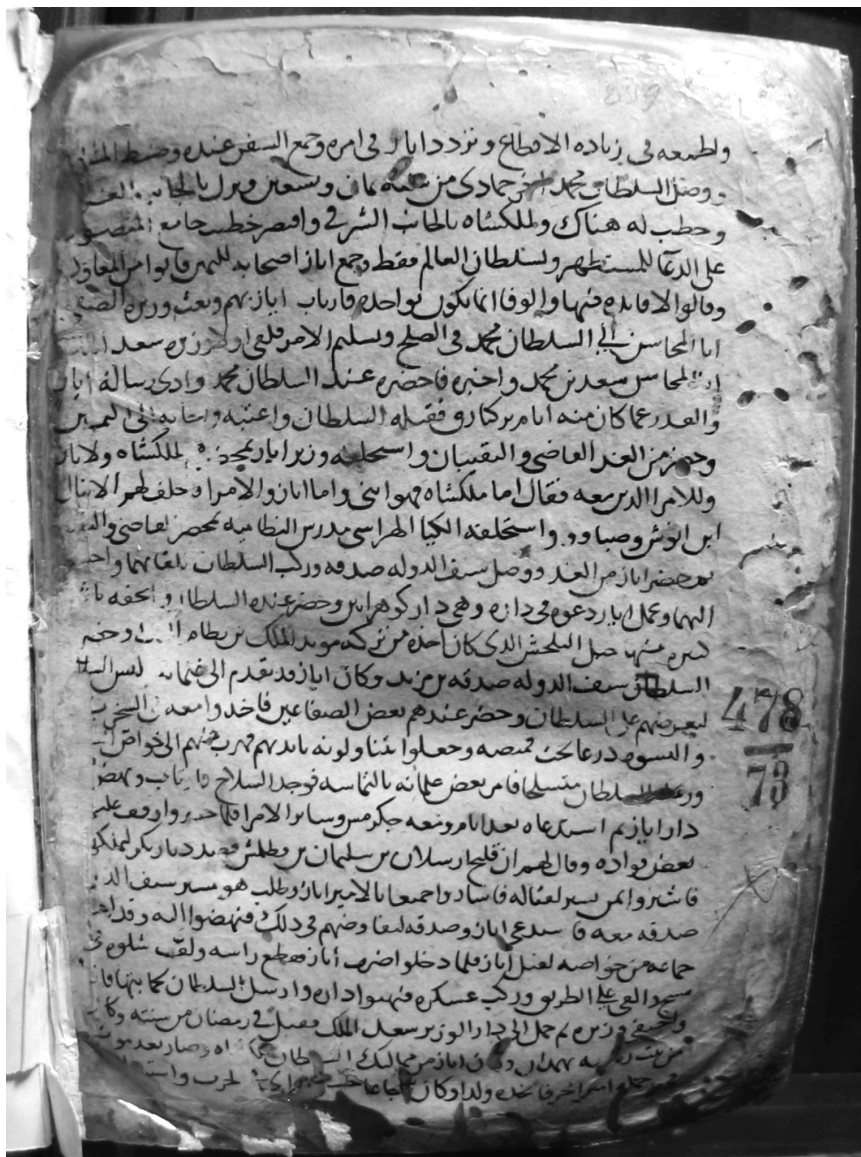 ولطمعه فى زياده الاقطاع وتردد اياز فى امره وجمع السفن عنده وضبط
ووصل السلطان محمد جمادى من سنه ثمان وتسعين ونزل بالجانب
وخطب له هناك ولملكشاه بالجانب الشرقى واقتصر خطيب جامع المنصور
على الدعا للمستظهر ولسلطان العالم فقط وجمع اياز اصحابه لليمين فابوا من المعاودة
وقالوا لا فايده فيها والوفا انما يكون بواحده فارتاب اياز بهم وبعث وزيره الصفى
ابا المحاسن الى السلطان محمد فى الصلح وتسليم الامر فلقى اولا وزيره سعد
ابا المحاسن سعد بن محمد واخبره فاحضره عند السلطان محمد وادى رسالة اياز
والعذر عما كان منه ايام بركيارق فقبله السلطان واعتبه واجابه الى اليمين
وحضر من الغد القاضى والنقيبان واستحلفه وزير اياز بمحضرهم لملكشاه ولاياز
وللامرا الذين معه فقال اما ملكشاه فهو ابنى واما اياز والامراء حلف لهم الا ينال
ابن انوش وصباوو واستحلفه الكيا الهراسى مدرس النظاميه بمحضر القاضى
ثم حضر اياز من الغد ووصل سيف الدوله صدقه وركب السلطان للقائهما
اليهما وعمل اياز دعوه فى داره وهى دار كوهرايين وحضر عنده السلطان واتحفه
كثيره منها حبل البلخش الذى كان اخذه من تركه مويد الملك بن نظام وحضر
السلطان سيف الدوله صدقه بن مزيد وكان اياز قد تقدم الى غلمانه لبس السلاح
ليعرضهم على السلطان وحضر عندهم بعض الصفاعين فاخذوا معه فى السخريه
والبسوه درعا تحت قميصه وجعلوا يتناولونه بايديهم فهرب منهم الى خواص
السلطان متسلحا فامر بعض غلمانه بالتماسه فوجد السلاح فارتاب ونهض
دار اياز ثم استدعاه بعد ايام ومعه جكرمس وساير الامرا فلما حضر وقف عليهم
بعض قواده وقال لهم ان قليج ارسلان بن سليمان بن قطلمش قصد ديار بكر ليملكها
فاشيروا بمن يسير لقتاله فاشاروا جميعا بالامير اياز وطلب هو مسير سيف الدوله
صدقه معه فاستدعى اياز وصدقه ليفاوضهم فى ذلك فنهضوا اليه وقد اعد
جماعه من خواصه لقتل اياز فلما دخلوا ضرب اياز فقطع راسه ولف شلوه فى
مسح والقى على الطريق وركب عسكره فنهبوا داره وارسل السلطان لحمايتها
واختفى وزيره ثم حمل الى دار الوزير سعد الملك وقتل فى رمضان من سنته وكان
من بيت رياسه بهمدان وكان اياز من مماليك السلطان ملكشاه وصار بعد موته
امير اخر فاتخذه ولدا وكان شجاعا
478
73